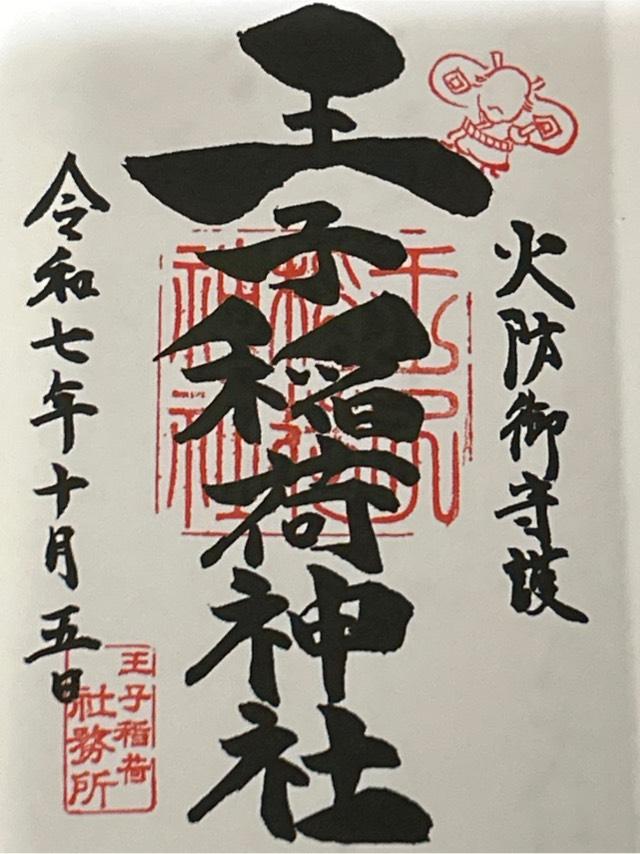 火防御守護
王子稲荷神社
令和七年十月五日
王子稲荷神社
王子稲荷
社務所